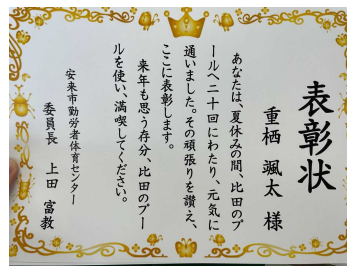 表彰状
重栖 颯太 様
あなたは、夏休みの間、比田のプ
ールへ二十回にわたり、元気に
通いました。その頑張りを讃え、
ここに表彰します。
来年も思う存分、比田のプー
ルを使い、満喫してください。
安来市勤労者体育センター
委員長 上田 富教